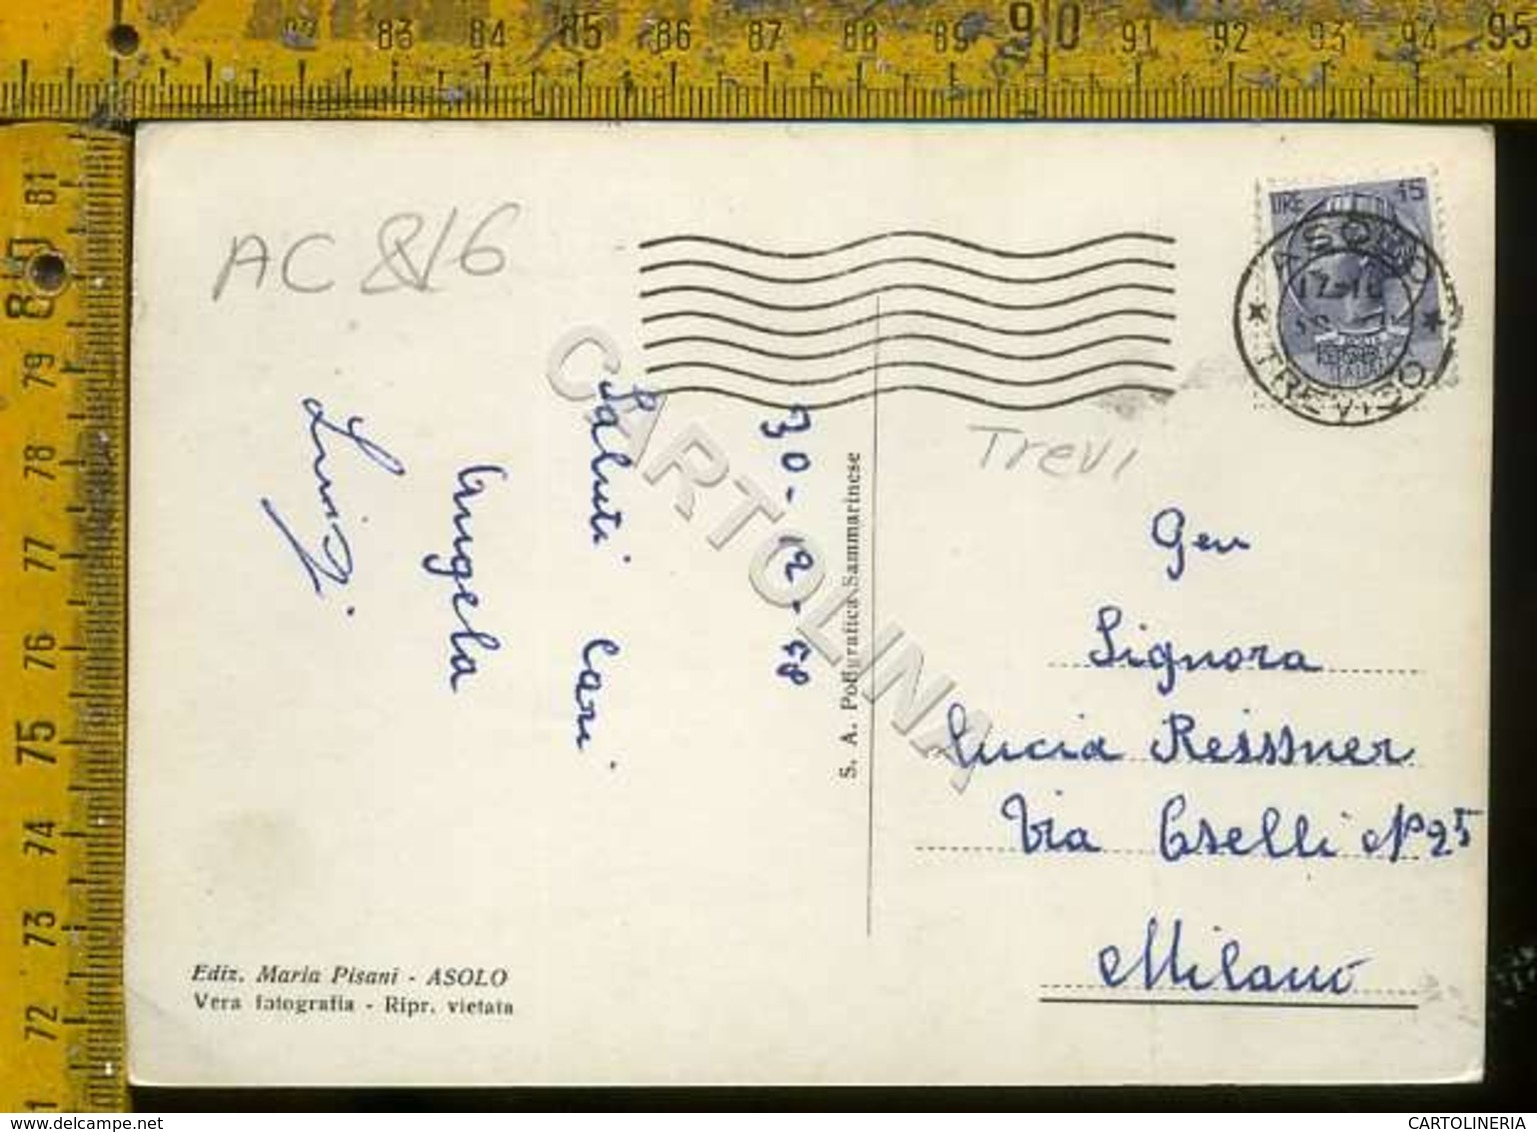 82 83 84 85 86 87 88 89 90 91 92 93 94 95
81
80
79
78
77
76
75
74
73
72
AC 816
LIRE 15
ASOLO
TREVISO
Trevi
30-12-58
Saluti cari
Angela
Luigi
S. A. Poligrafica Sammarinese
Gen
Signora
Lucia Ressner
Via Eselli N° 25
Milano
Ediz. Maria Pisani - ASOLO
Vera fotografia - Ripr. vietata
CARTOLINA
www.delcampe.net
CARTOLINERIA